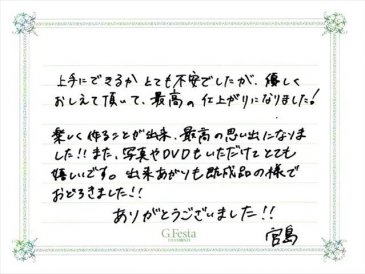 上手にできるか とても不安でしたが、優しく
おしえて頂いて、最高の仕上がりになりました!
楽しく作ることが出来、最高の思い出になりま
した!! また、写真やDVDもいただけてとても
嬉しいです。出来あがりも既成品の様で
おどろきました!!
ありがとうございました!!
宮島
G.Festa